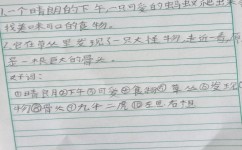 1.一个晴朗的下午,一只可爱的蚂蚁爬出来寻
找美味可口的食物。
2.它在草丛里发现了一只大怪物,走近一看,原
是一根巨大的骨头。
好词:
①晴朗②下午③可爱④食物⑤草丛⑥发现
物⑧骨头①九牛二虎⑩左思右想